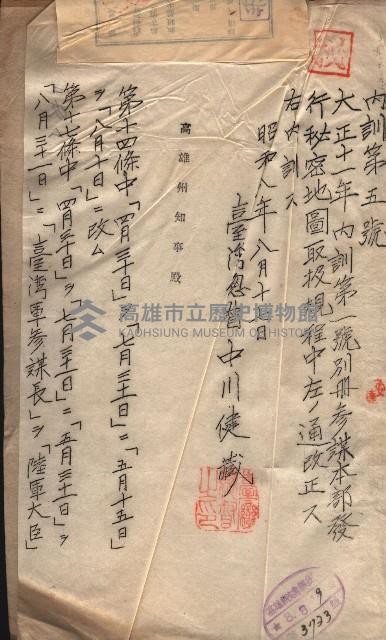 秘
内訓第五號
大正十一年內訓第一號別冊参謀本部發
行秘密地圖取扱規程中左ノ通改正ス
右内訓ス
昭和八年八月十日
臺湾総督中川健藏
高雄州知事殿
第十四條中「四月三十日」ヲ「七月三十一日」ニ「五月十五日」
ヲ「八月十日」ニ改ム
第十七條中「四月三十日」ヲ「七月三十一日」ニ「五月三十一日」ヲ
「八月三十一日」ニ「臺湾軍参謀長」ヲ「陸軍大臣」
高雄市立歷史博物館
KAOHSIUNG MUSEUM OF HISTORY
8. 9
3723